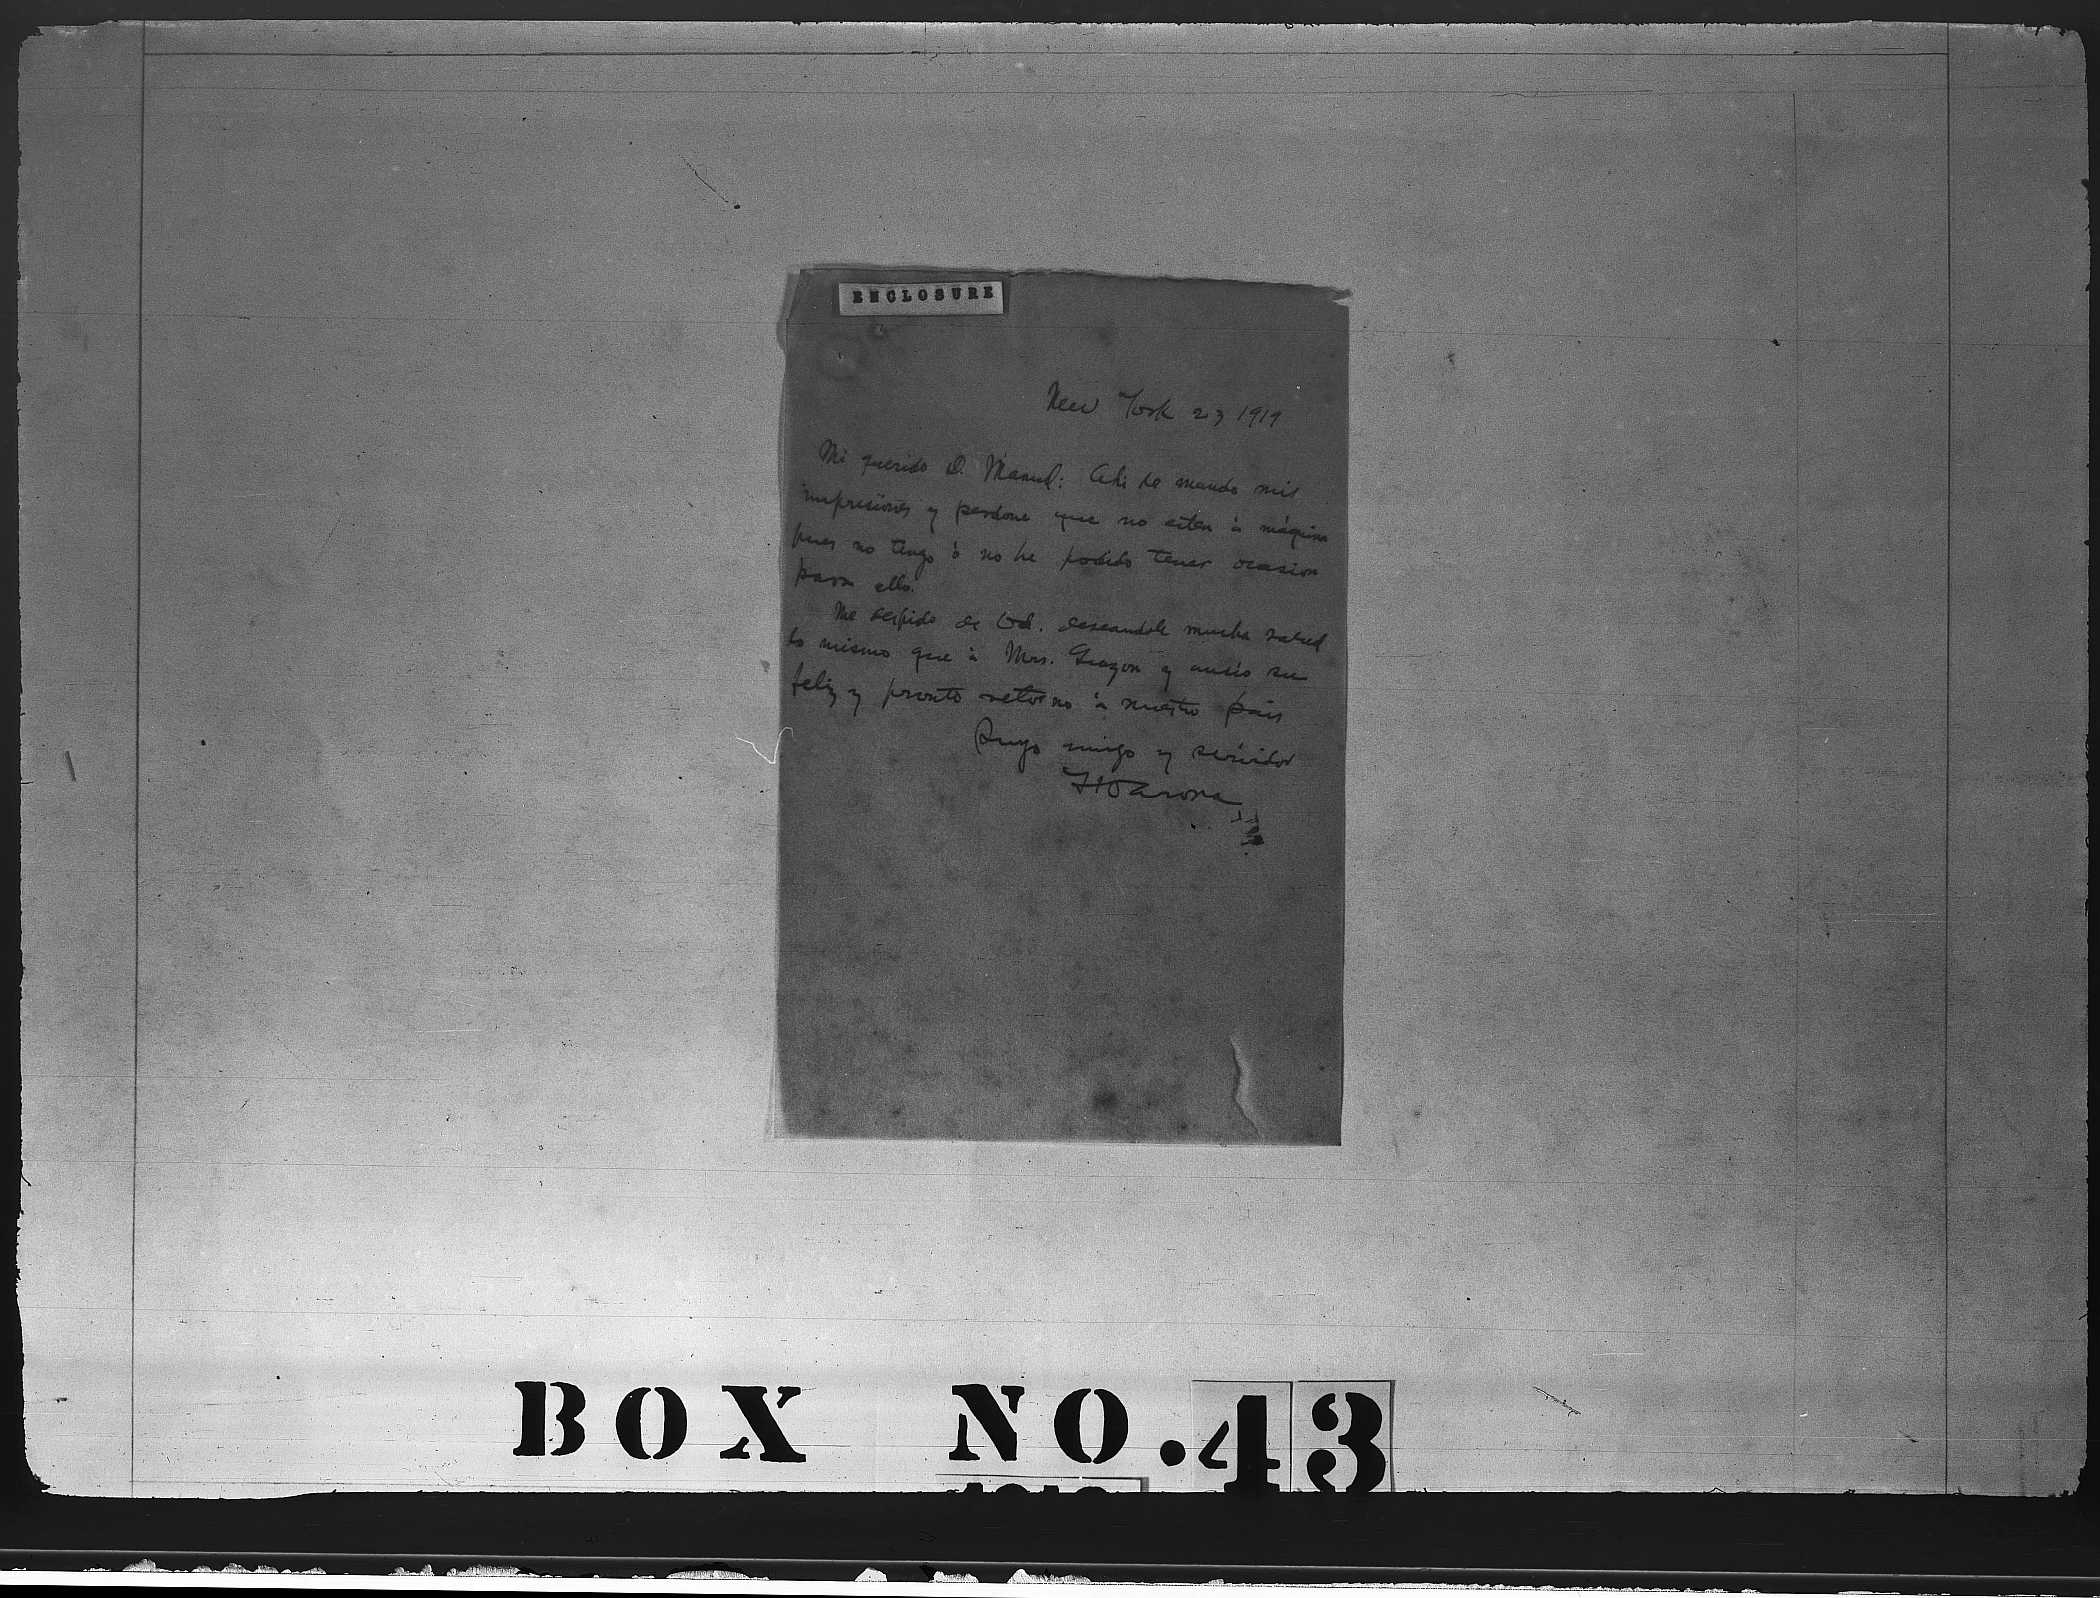 ENCLOSURE
New York 23 1919
Mi querido D. Manuel: Ahi le mando mis
impresiones y perdone que no esten à máquina
pues no tengo ò no he podido tener ocasion
para ello.
Me despido de Ud. deseandole mucha salud
lo mismo que à Mrs. y ansio su
feliz y pronto retorno à nuestro pais
Suyo amigo y servidor
BOX NO. 43